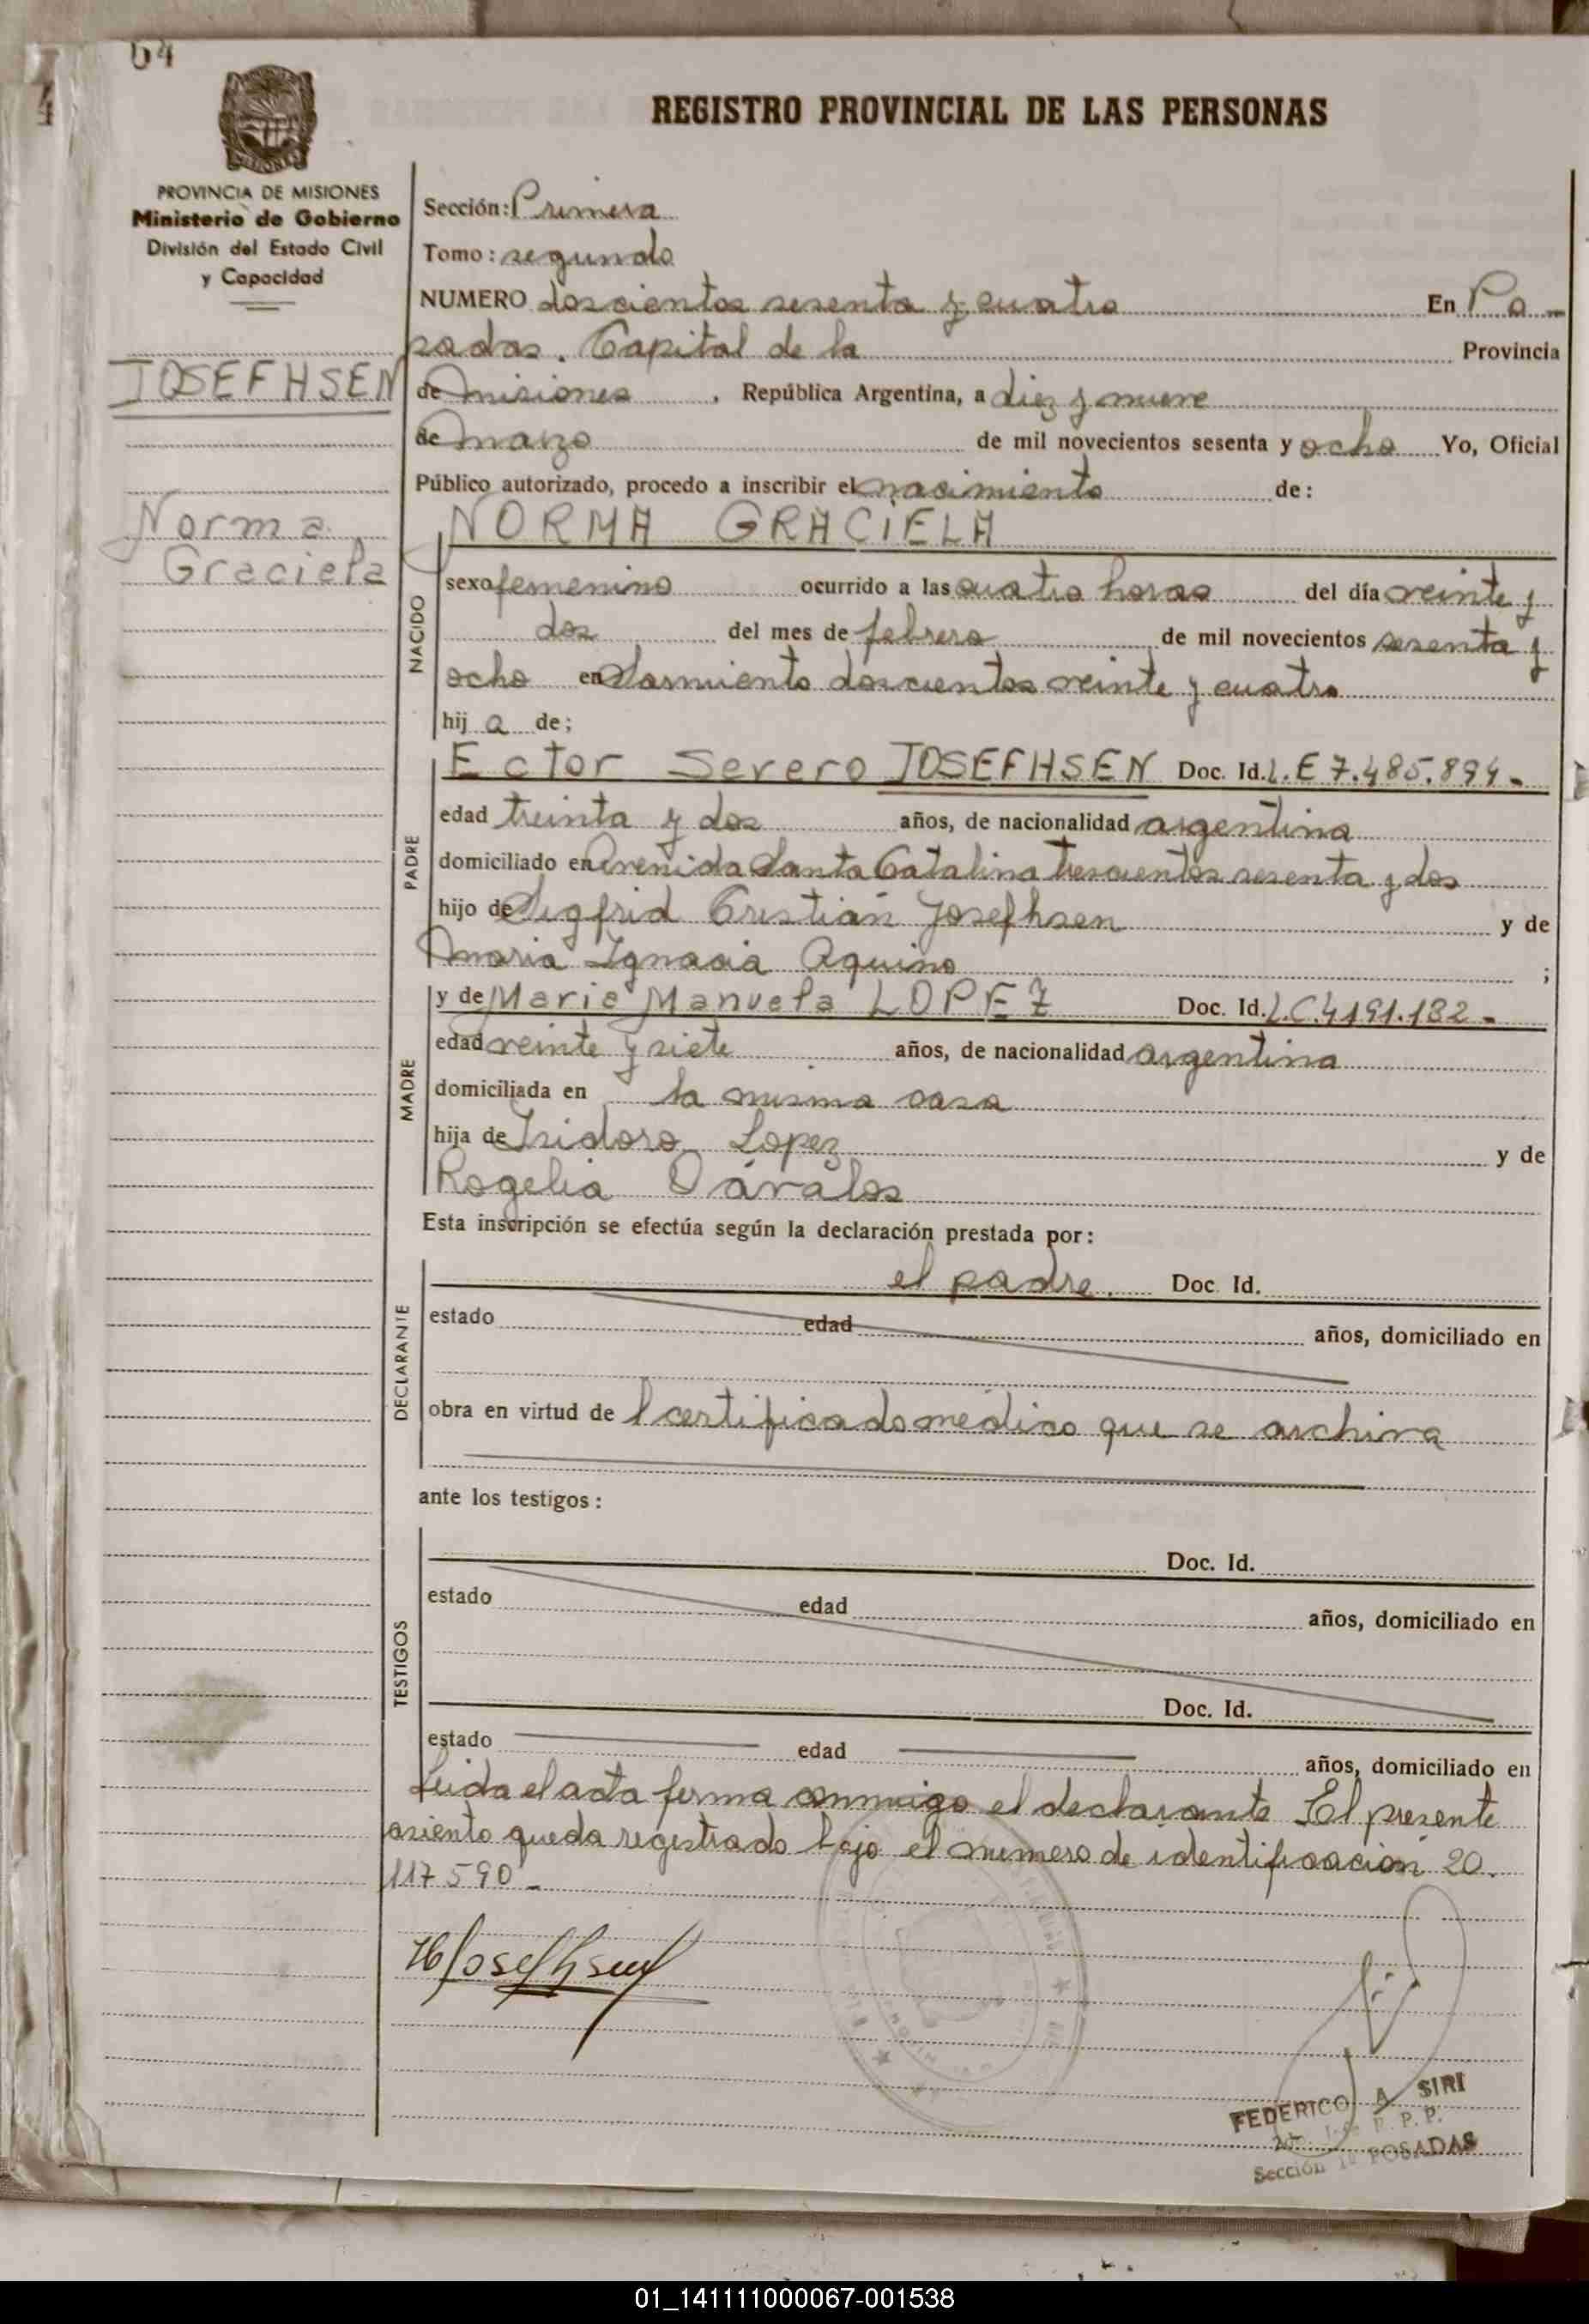 64
REGISTRO PROVINCIAL DE LAS PERSONAS
PROVINCIA DE MISIONES
Ministerio de Gobierno
División del Estado Civil
y Capacidad
JOSEFHSEN
Norma
Graciela
Sección: Primera
Tomo: segundo
NUMERO doscientos sesenta y cuatro En Po-
sadas. Capital de la Provincia
de Misiones, República Argentina, a diez y nueve
de Marzo de mil novecientos sesenta y ocho Yo, Oficial
Público autorizado, procedo a inscribir el nacimiento de:
NORMA GRACIELA
NACIDO
sexo femenino ocurrido a las cuatro horas del día veinte y
dos del mes de febrero de mil novecientos sesenta y
ocho en Sarmiento doscientos veinte y cuatro
hija de;
PADRE
Ector Severo JOSEFHSEN Doc. Id. L.E 7.485.894-
edad treinta y dos años, de nacionalidad argentina
domiciliado en Avenida Santa Catalina trescientos sesenta y dos
hijo de Sigfrid Cristián Josefhsen y de
Maria Ignacia Aquino ;
MADRE
y de Maria Manuela LOPEZ Doc. Id. L.C.4191.132-
edad veinte y siete años, de nacionalidad argentina
domiciliada en la misma casa
hija de Isidoro Lopez y de
Rogelia Dávalos
Esta inscripción se efectúa según la declaración prestada por:
DECLARANTE
el padre. Doc. Id.
estado edad años, domiciliado en
obra en virtud de l certificado médico que se archiva
ante los testigos:
TESTIGOS
Doc. Id.
estado edad años, domiciliado en
Doc. Id.
estado edad años, domiciliado en
Leida el acta firma conmigo el declarante. El presente
asiento queda registrado bajo el numero de identificación 20.
117590-
HJosefhsen
FEDERICO A SIRI
Sección 1ª POSADAS
01_141111000067-001538